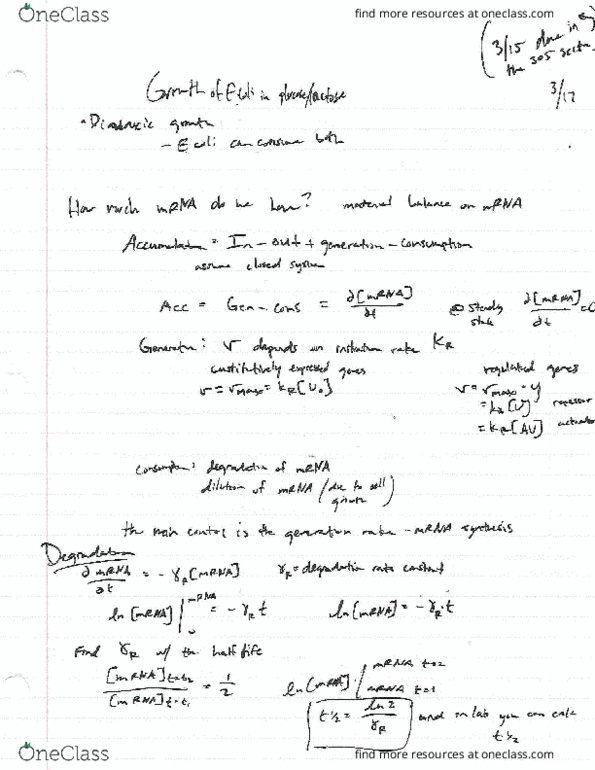 OneClass
find more resources at oneclass.com
(3/15 done in
the 305 section
3/17
Growth of E Coli in glucose/lactose
• Diauxic growth
- E coli can consume both
How much mRNA do we have? material balance on mRNA
Accumulation = In - out + generation - consumption
assume closed system
Acc = Gen - cons = ∂[mRNA]/∂t @ steady state ∂[mRNA]/∂t = 0
Generation: v depends on initiation rate kR
constitutively expressed genes
regulated genes
v = vmax = kR[U0]
v = vmax · y
= kR[U] repressor
= kR[AU] activator
consumption: degradation of mRNA
dilution of mRNA (due to cell growth)
the main control is the generation rate - mRNA synthesis
Degradation
∂mRNA/∂t = -γR[mRNA] γR = degradation rate constant
ln[mRNA] | = -γR t ln[mRNA] = -γR·t
Find γR w/ the half life
[mRNA]t=t2/[mRNA]t=t1 = 1/2 ln[mRNA] | mRNA t=2
mRNA t=1
t½ = ln 2/γR and in lab you can calc
t½
OneClass
find more resources at oneclass.com